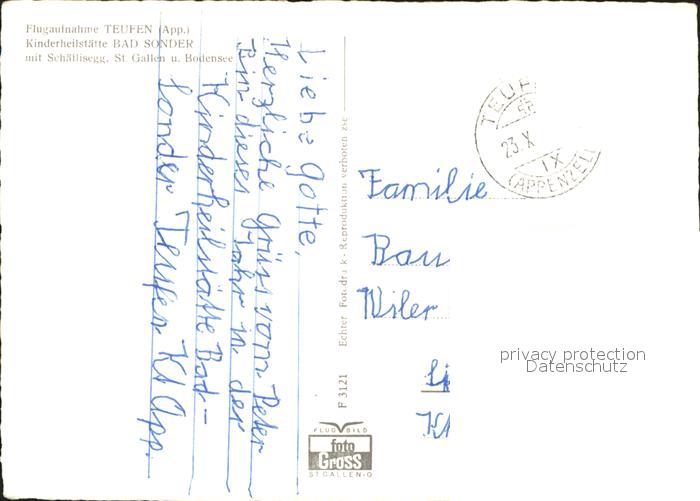 Flugaufnahme TEUFEN (App.)
Kinderheilstätte BAD SONDER
mit Schällisegg, St. Gallen u. Bodensee
Liebe Gotte,
Herzliche Grüss vom Peter
Bin dieses Jahr in der
Kinderheilstätte Bad-
Sonder Teufen Kt App.
F 3121 Echter Fotodruck - Reproduktion verboten
FLUG BILD
foto
Gross
ST. GALLEN-O
TEUF
23. X
IX
(APPENZELL
Familie
Bau
Wiler
Li
Kt
privacy protection
Datenschutz